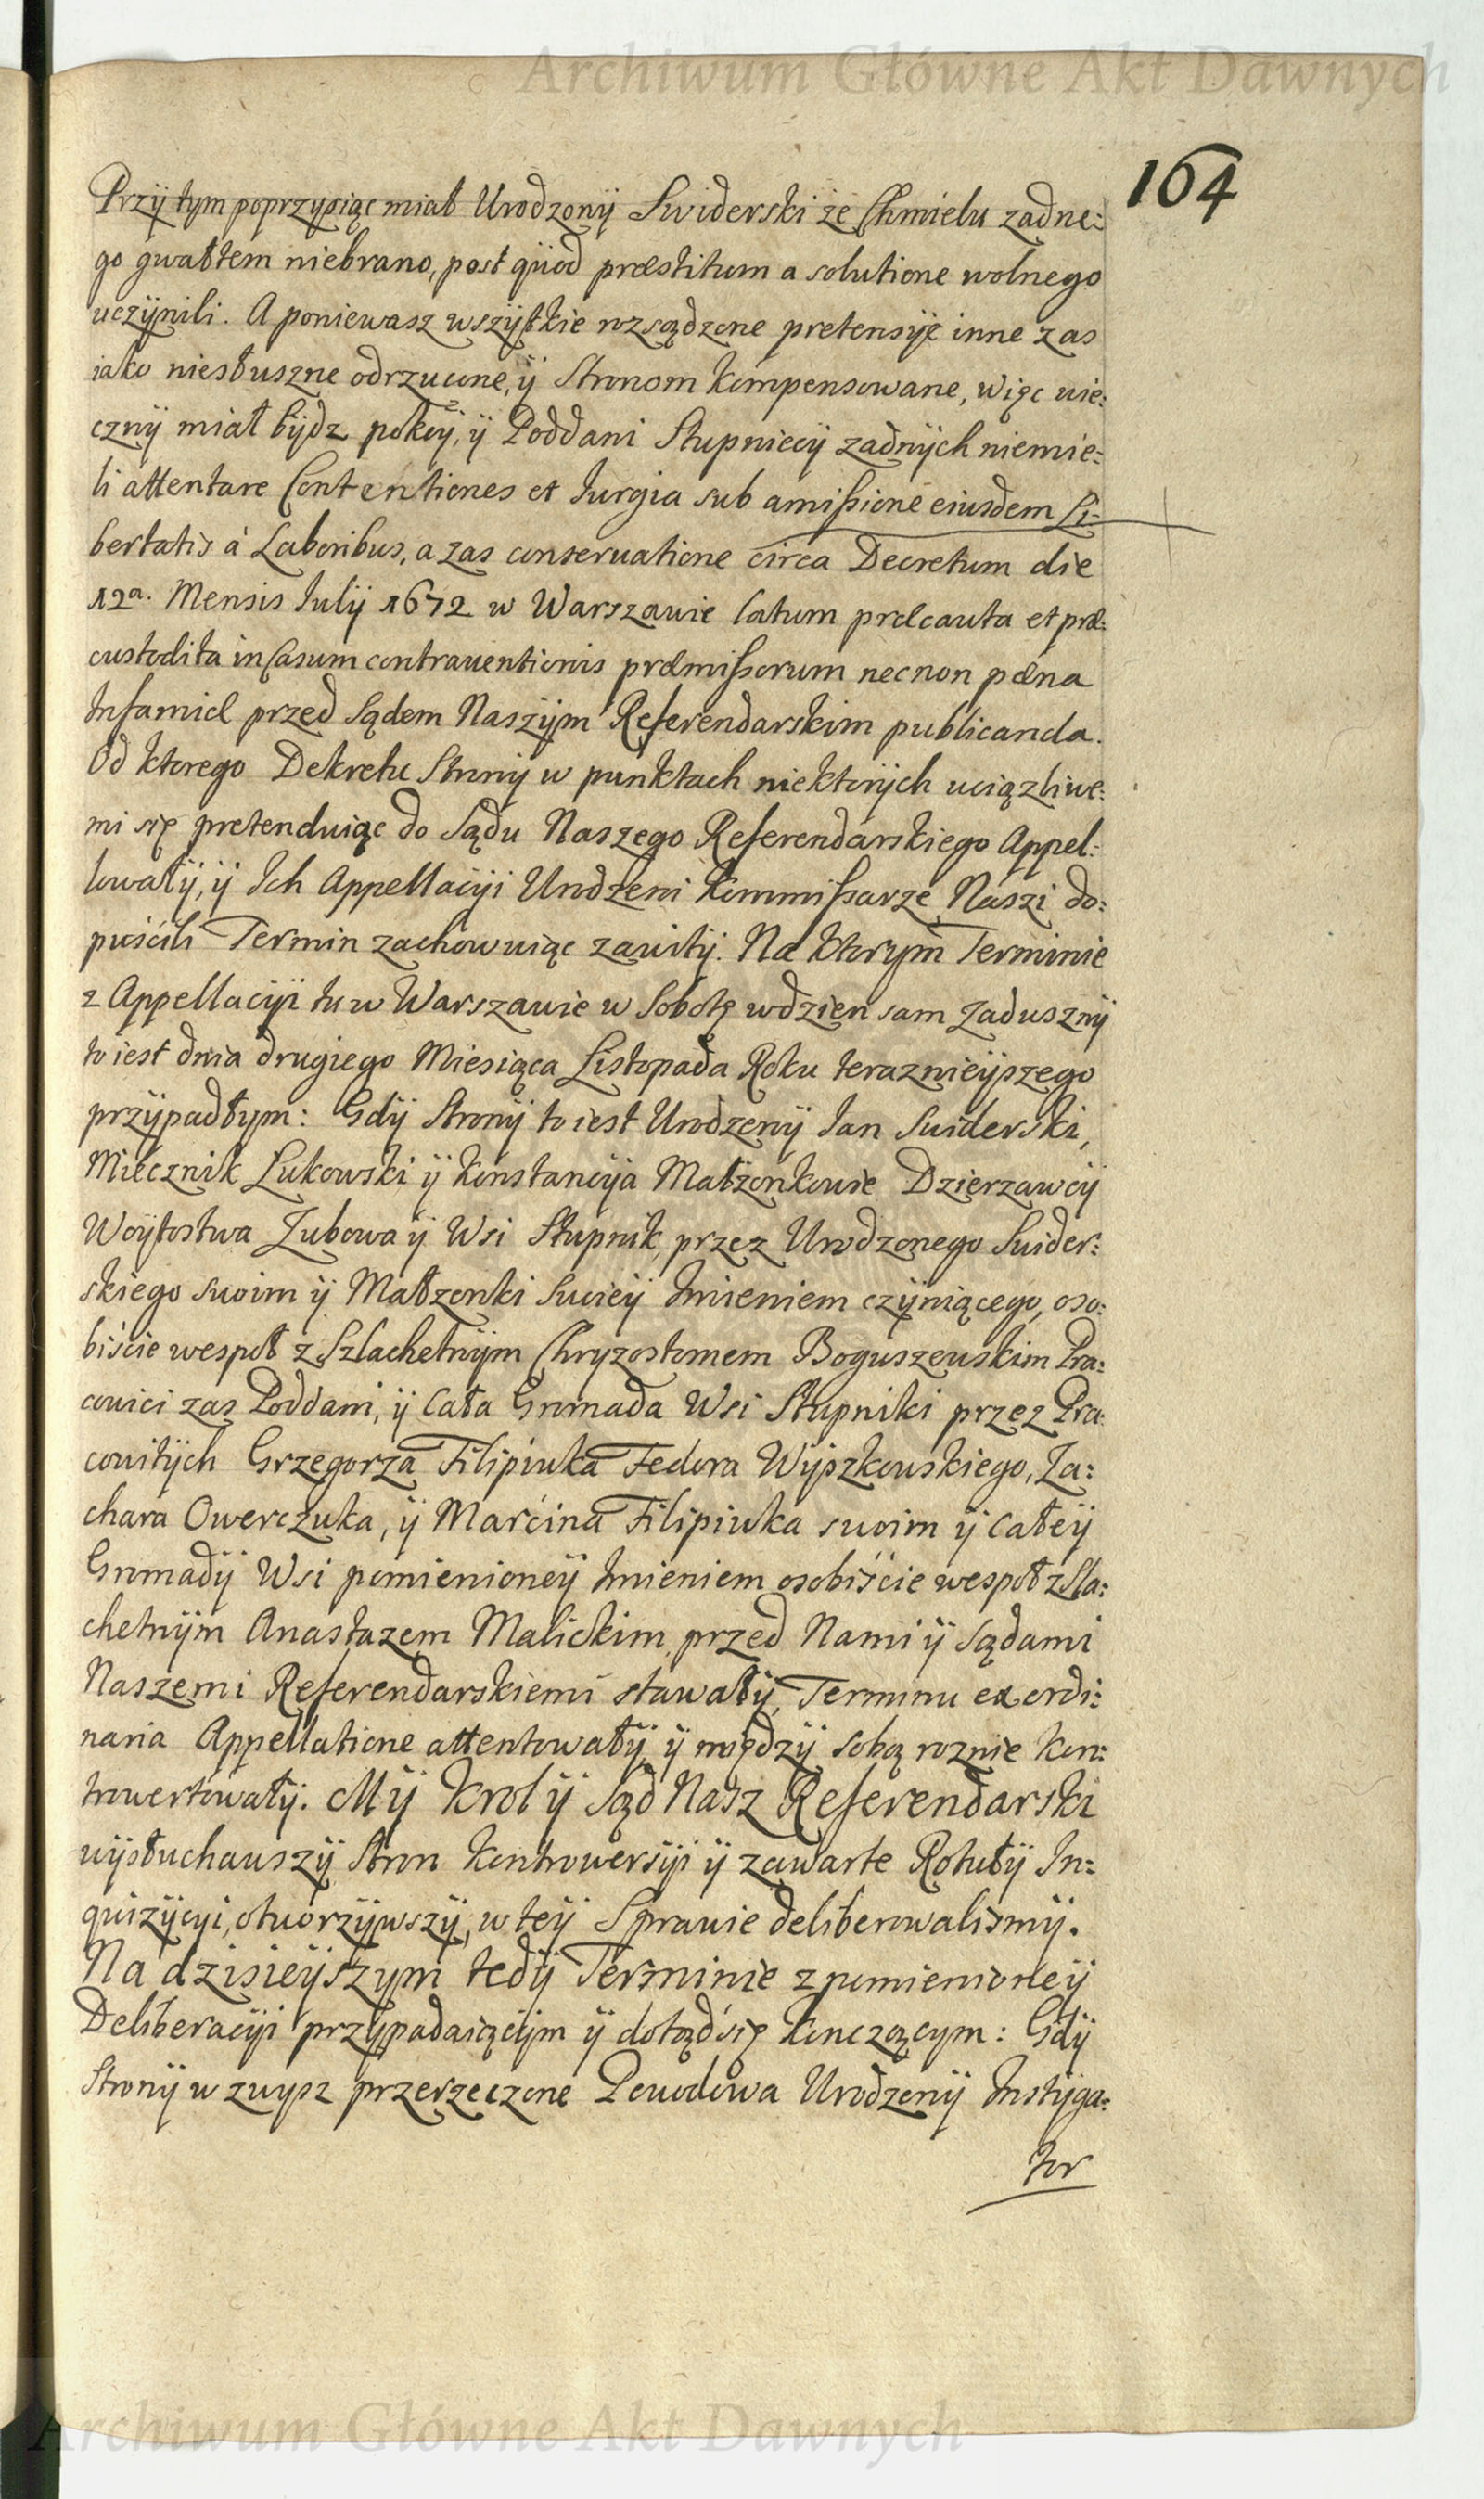 Archiwum Główne Akt Dawnych
164
Przÿ tym poprzysiąc miał Urodzonÿ Swiderski że Chmielu zadne:
go gwałtem niebrano, post quod præstitum a solutione wolnego
uczÿnili. A poniewasz wszÿtkie rozsądzone pretensÿe inne zas
iako niesłuszne odrzucone, ÿ Stronom kompensowane, więc wie:
cznÿ miał bÿdz pokoÿ, ÿ Poddani Stupniccÿ zadnÿch niemie:
li attentare Contentiones et Iurgia sub amissione eiusdem Li=
bertatis á Laboribus, a zas conseruatione circa Decretum die
12a. Mensis Julÿ 1672 w Warszawie latum præcauta et præ:
custodita in Casum contrauentionis præmissorum necnon pæna
Infamiæ przed Sądem Naszÿm Referendarskim publicanda.
Od ktorego Dekretu Stronÿ w punktach niektorÿch uciązliwe:
mi się pretenduiąc do Sądu Naszego Referendarskiego Appel:
lowałÿ, ÿ Ich Appellacÿi Urodzeni Kommissarze Naszi do:
puścili Termin zachowuiąc zawitÿ. Na ktorym Terminie
z Appellacÿi tu w Warszawie w Sobotę w dzien sam Zadusznÿ
to iest dnia drugiego Miesiąca Listopada Roku teraznieÿszego
przÿpadłym: Gdÿ Stronÿ to iest Urodzenÿ Jan Swiderski,
Miecznik Lukowski ÿ Konstancÿa Małzonkowie Dzierzawcÿ
Woÿtostwa Zubowa ÿ Wsi Stupnik, przez Urodzonego Swider:
skiego swoim ÿ Małzonki Swoieÿ Imieniem czÿniącego, oso:
biście wespoł z Szlachetnÿm Chryzostomem Boguszewskim Pra:
cowici zas Poddani, ÿ Cała Gromada Wsi Stupniki przez Pra:
cowitÿch Grzegorza Filipiuka Fedora Wÿszkowskiego, Za:
chara Owerczuka, ÿ Marcina Filipiuka swoim ÿ całeÿ
Gromadÿ Wsi pomienioneÿ Imieniem osobiście wespoł z Sla:
chetnÿm Anastazem Malickim, przed Nami ÿ Sądami
Naszemi Referendarskiemi stawałÿ, Terminu ex ordi:
naria Appellatione attentowałÿ ÿ międzÿ sobą roznie kon:
trowertowałÿ. Mÿ Krol ÿ Sąd Nasz Referendarski
wÿsłuchawszÿ Stron Kontrowersÿi ÿ zawarte Rotułÿ In:
quizÿcyi, otworzÿwszÿ, w teÿ Sprawie deliberowalismÿ.
Na dzisieÿszym tedÿ Terminie z pomienioneÿ
Deliberacÿi przÿpadaiącÿm ÿ dotąd się konczącym: Gdÿ
Stronÿ w zwysz przerzeczone Powodowa Urodzenÿ Instÿga:
tor
Archiwum Główne Akt Dawnych